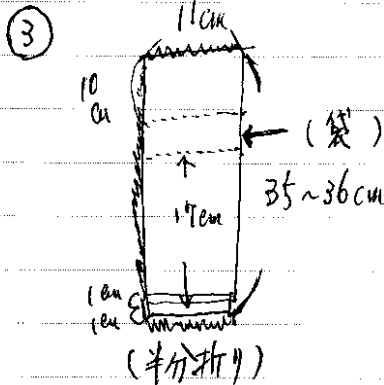 ③
11cm
10
cm
(袋)
35~36cm
17cm
1cm
1cm
(半分折り)